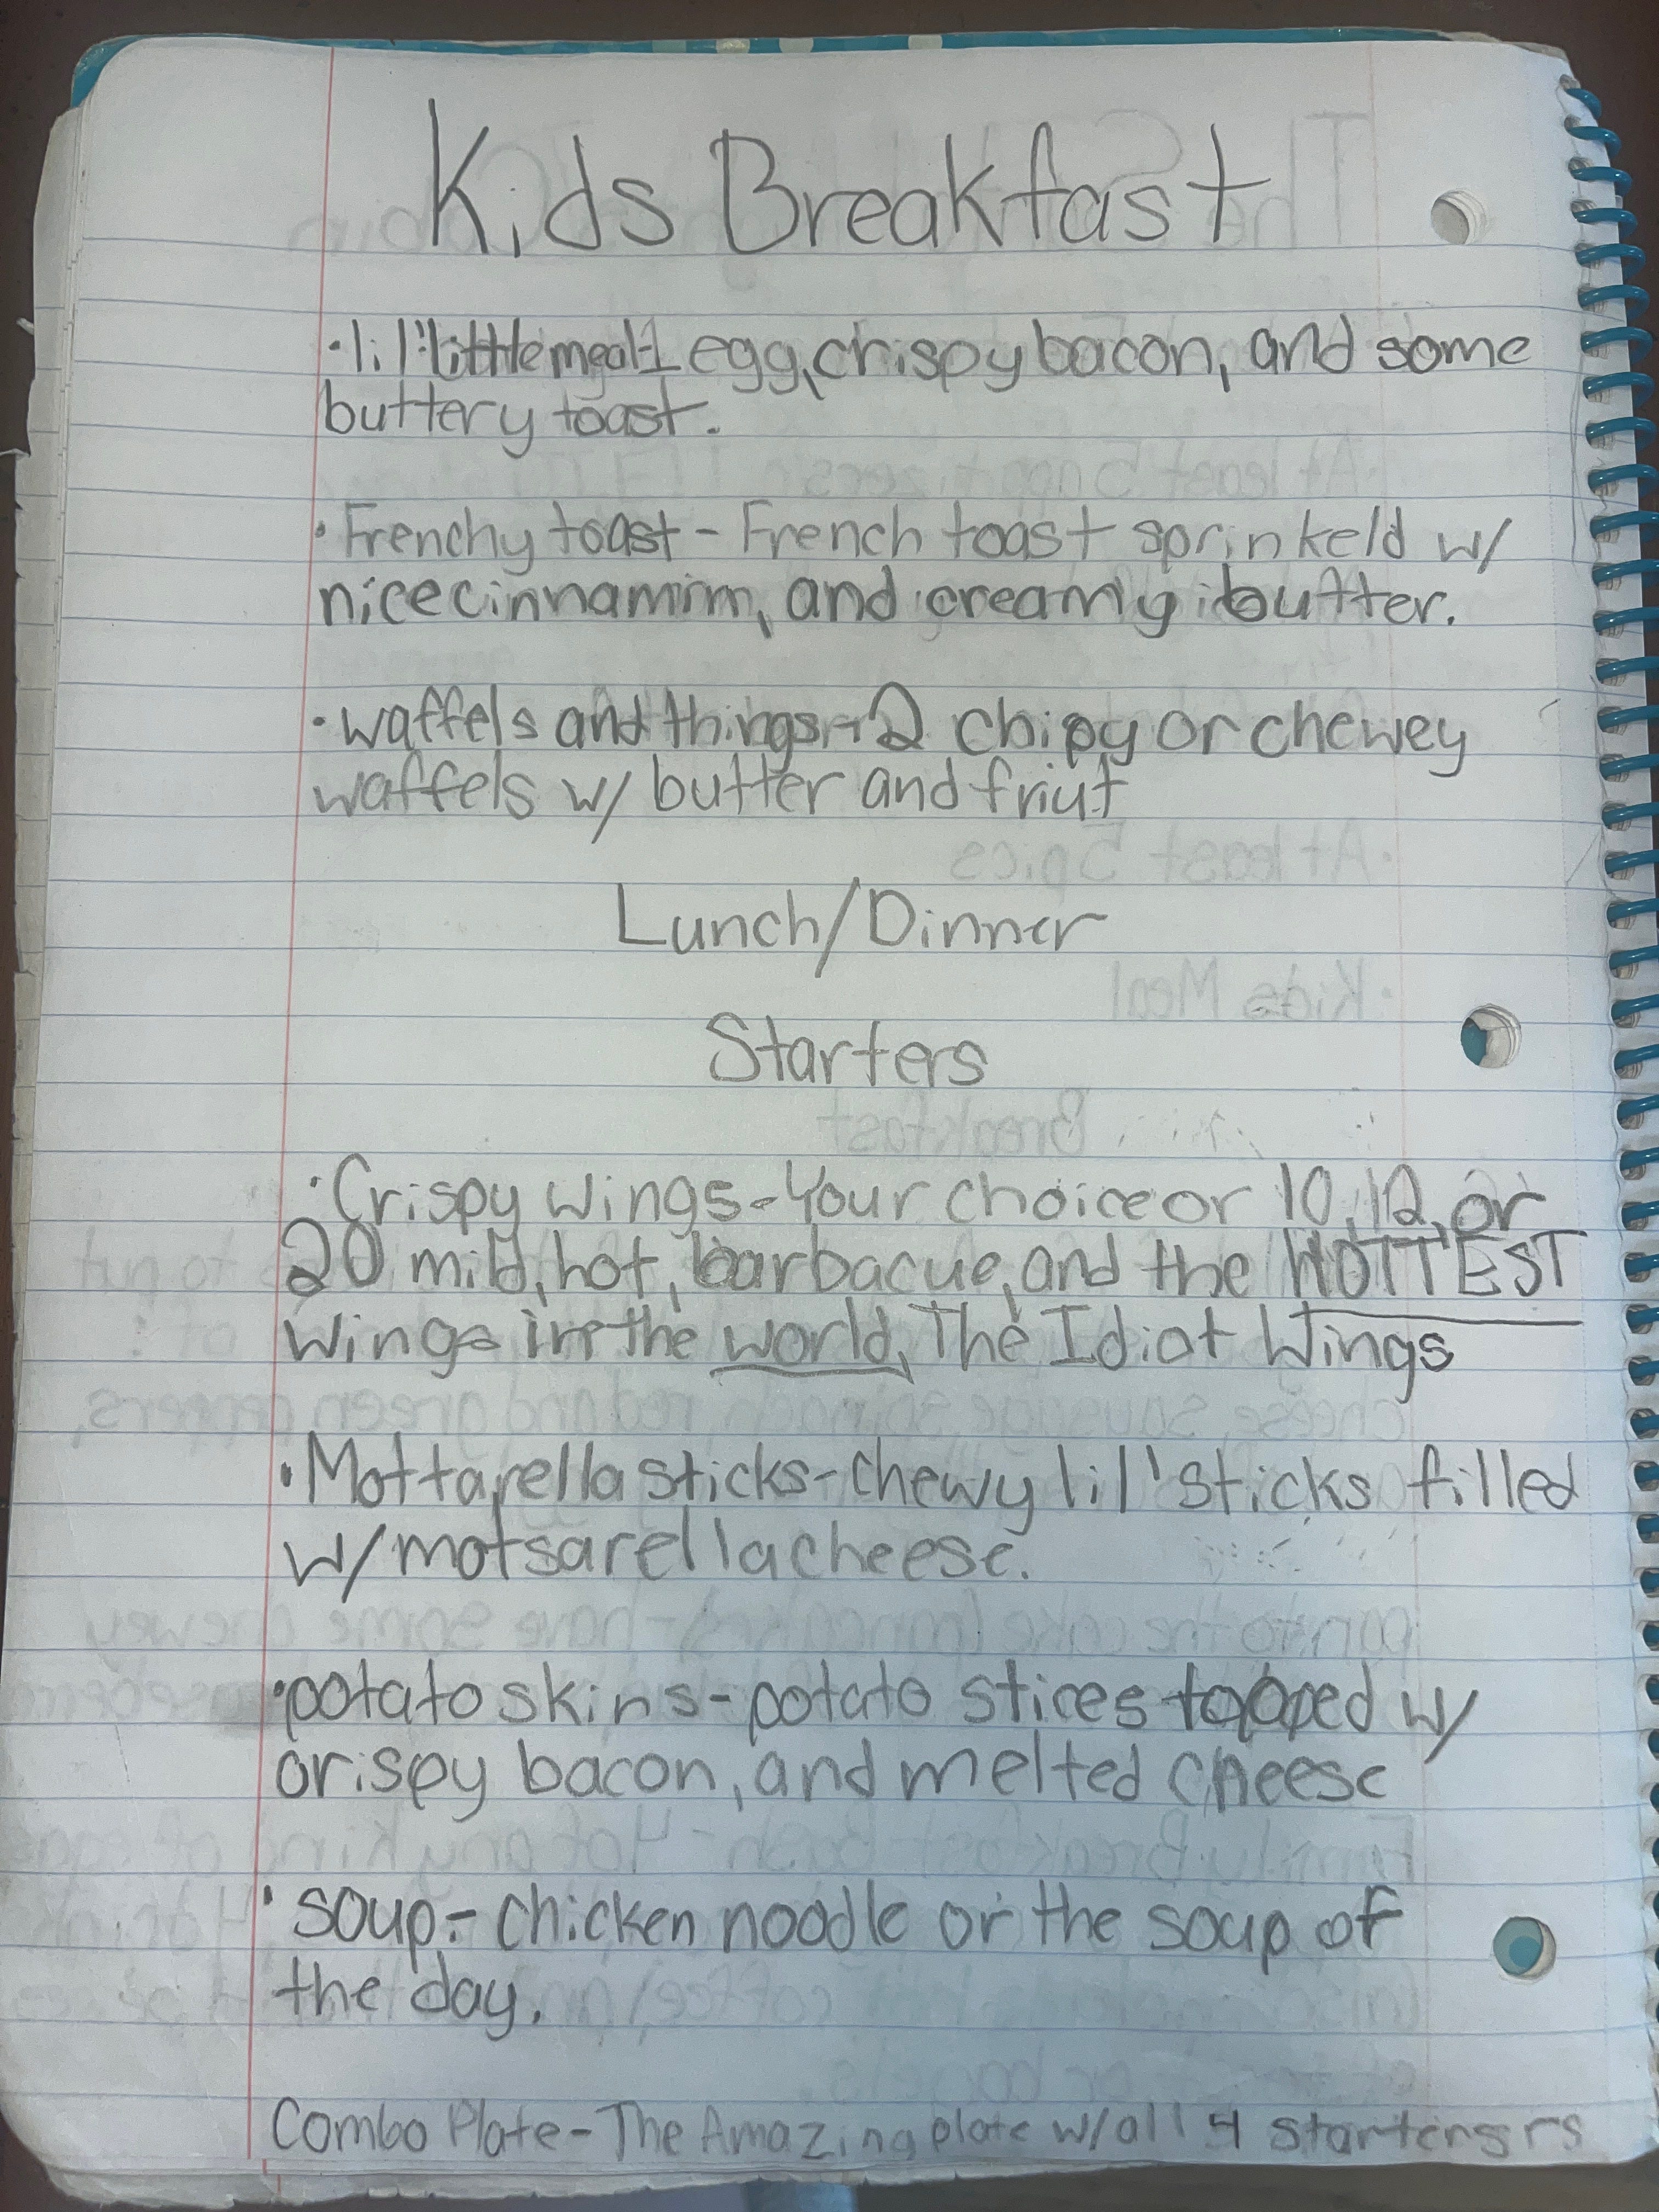 Kids Breakfast
• lil' little meal-1 egg, crispy bacon, and some
buttery toast.
• Frenchy toast - French toast sprinkeld w/
nice cinnamin, and creamy butter.
• waffels and things - 2 chipy or chewey
waffels w/ butter and friut
Lunch/Dinner
Starters
• Crispy Wings - Your choice or 10, 12, or
20 mild, hot, barbacue, and the HOTTEST
Wings in the world, The Idiot Wings
• Mottarella sticks - chewy lil' sticks filled
w/ motsarella cheese.
• potato skins - potato slices topped w/
crispy bacon, and melted cheese
• soup - chicken noodle or the soup of
the day.
Combo Plate - The Amazing plate w/ all 4